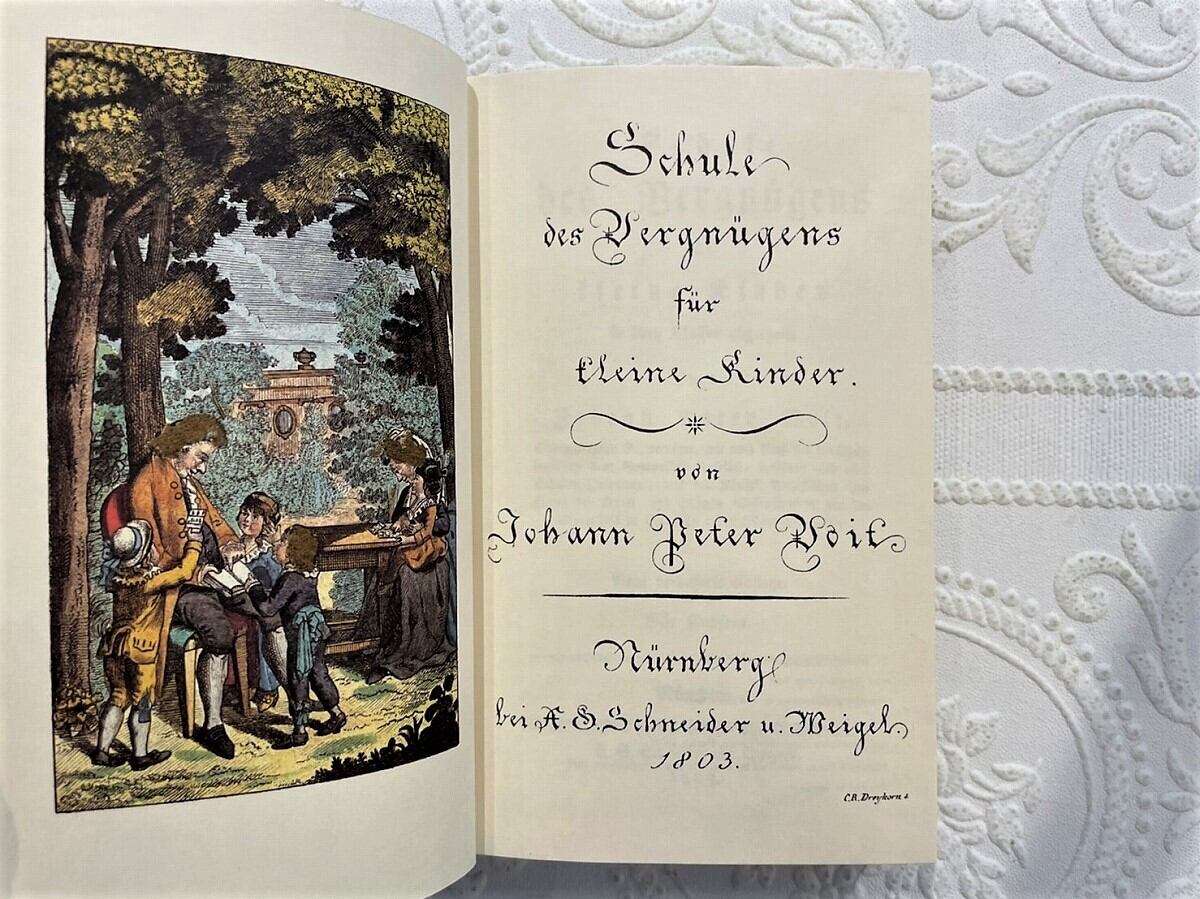 Schule
des Vergnügens
für
kleine Kinder.
von
Johann Peter Voit
Nürnberg
bei A. G. Schneider u. Weigel.
1803.
C.R. Dreykorn s